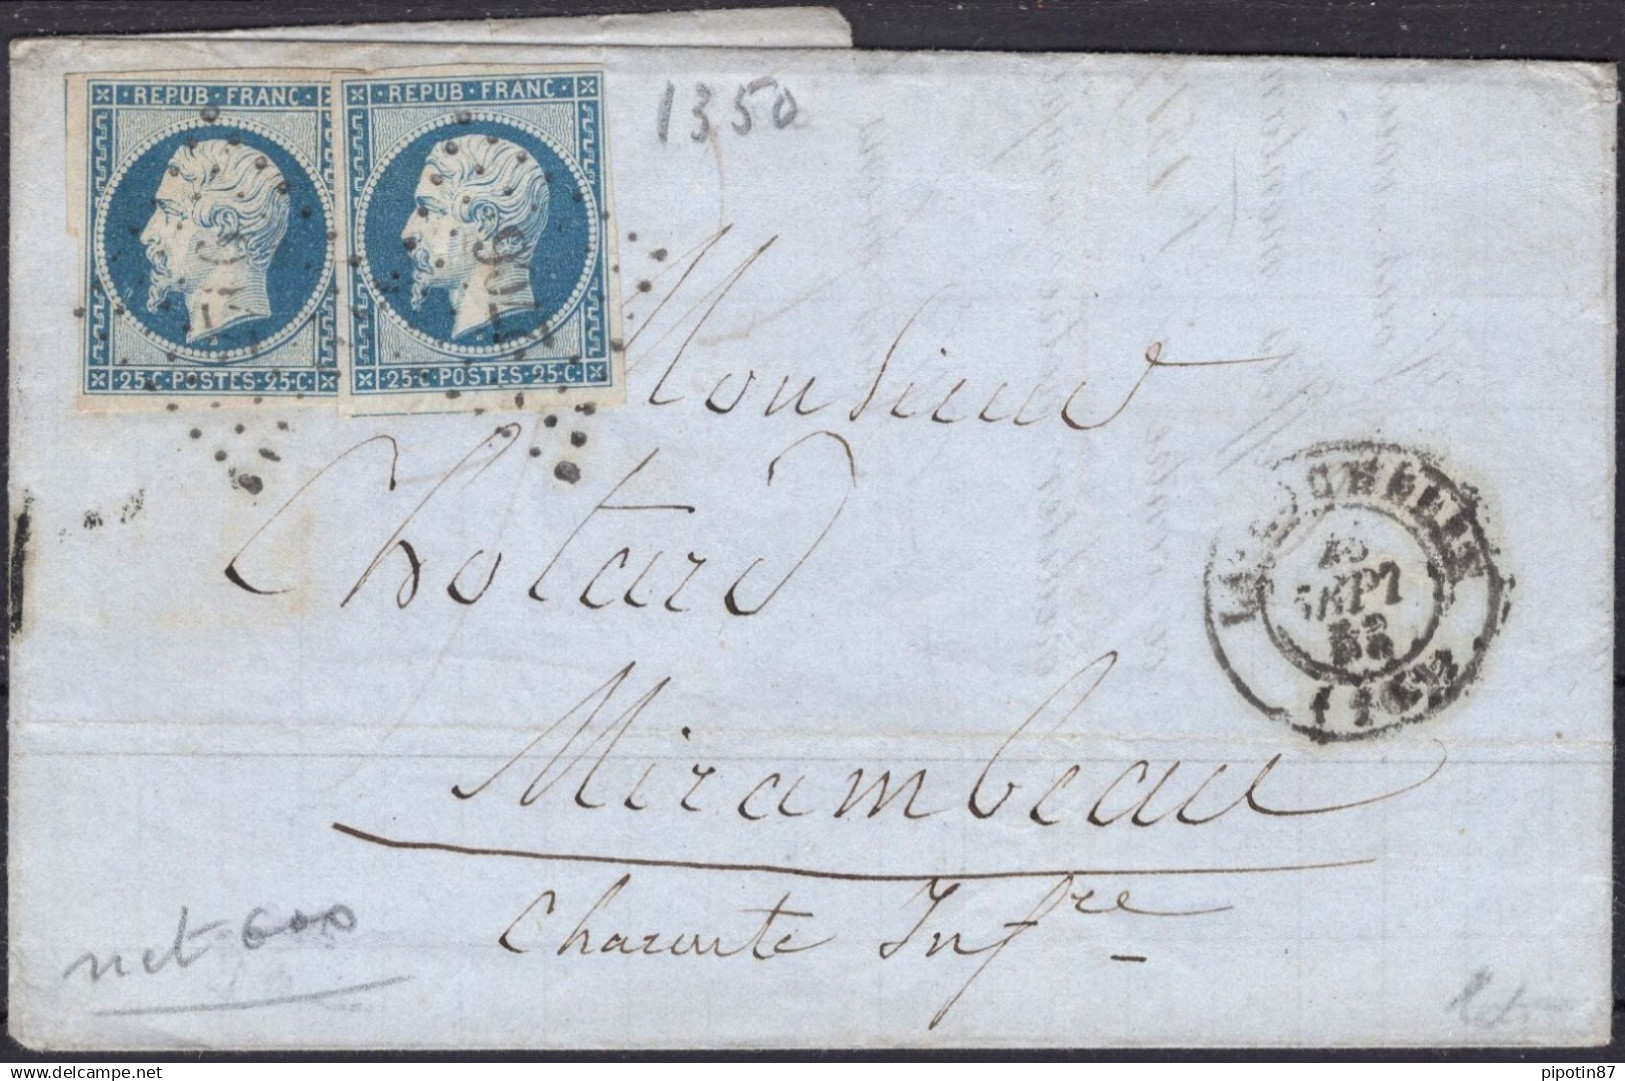 REPUB · FRANC ·
25·C·POSTES·25·C·
REPUB · FRANC ·
25·C·POSTES·25·C·
1350
Monsieur
Chotard
Mirambeau
Charente Infre
net 600
SEPT
pipotin87
delcampe.net